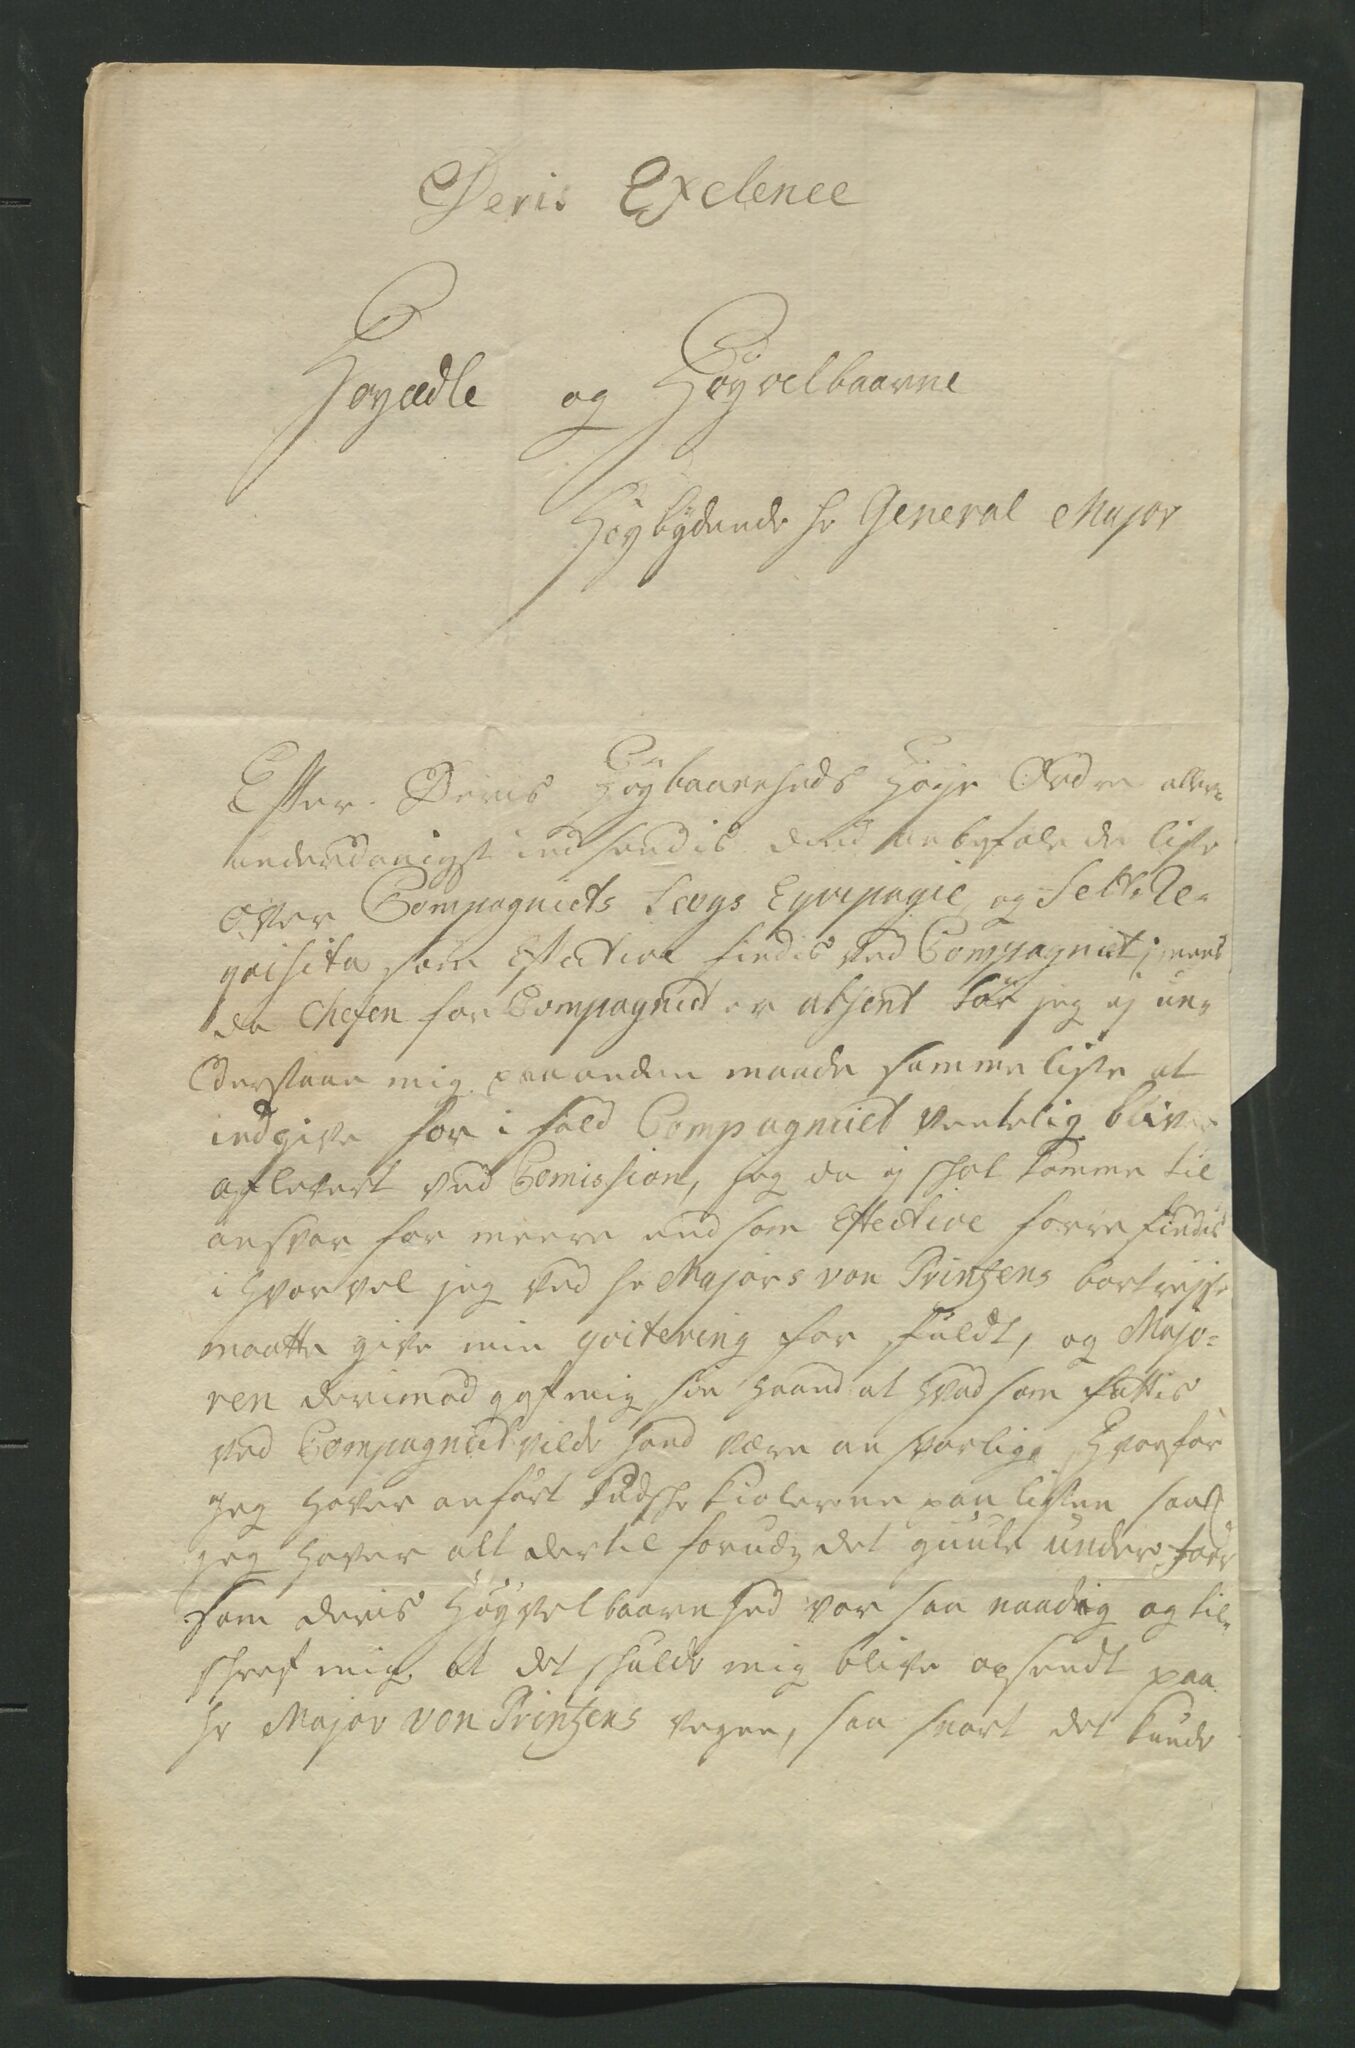 Deris Exelence
Høyædle og Høyvelbaarne
Høybydende hr General Major
Effter Deris Høybaarenheds høye Ordre aller=
underdanigst indsendis dend anbefalede liste
Over Compagniets Eqvipagie og Felt Re=
qvisita som Effective findis ved Compagniet; mens
da Chefen for Compagniet er absent tør jeg ej un=
derstaae mig paa anden maade samme liste at
indgive for i fald Compagniet ventelig bliver
aflevert ved Comission, jeg da ej skal komme til
ansvar for meere end som Effective forrefindis
ihvorvel jeg ved hr Majors von Printzens bortreyse
maatte give min qvitering for fuldt, og Majo=
ren derimod gaf mig sin haand at hvad som fattis
ved Compagniet vilde hand være ansvarlig, hvorfor
jeg haver anført kiolerne paa listen saa
jeg haver alt dertil forud, det guule underfoer
som deris Høyvelbaarenhed var saa naadig og til=
skref mig, at det skulde mig blive opsendt paa
hr Major von Printzens vegne, saa snart det kunde